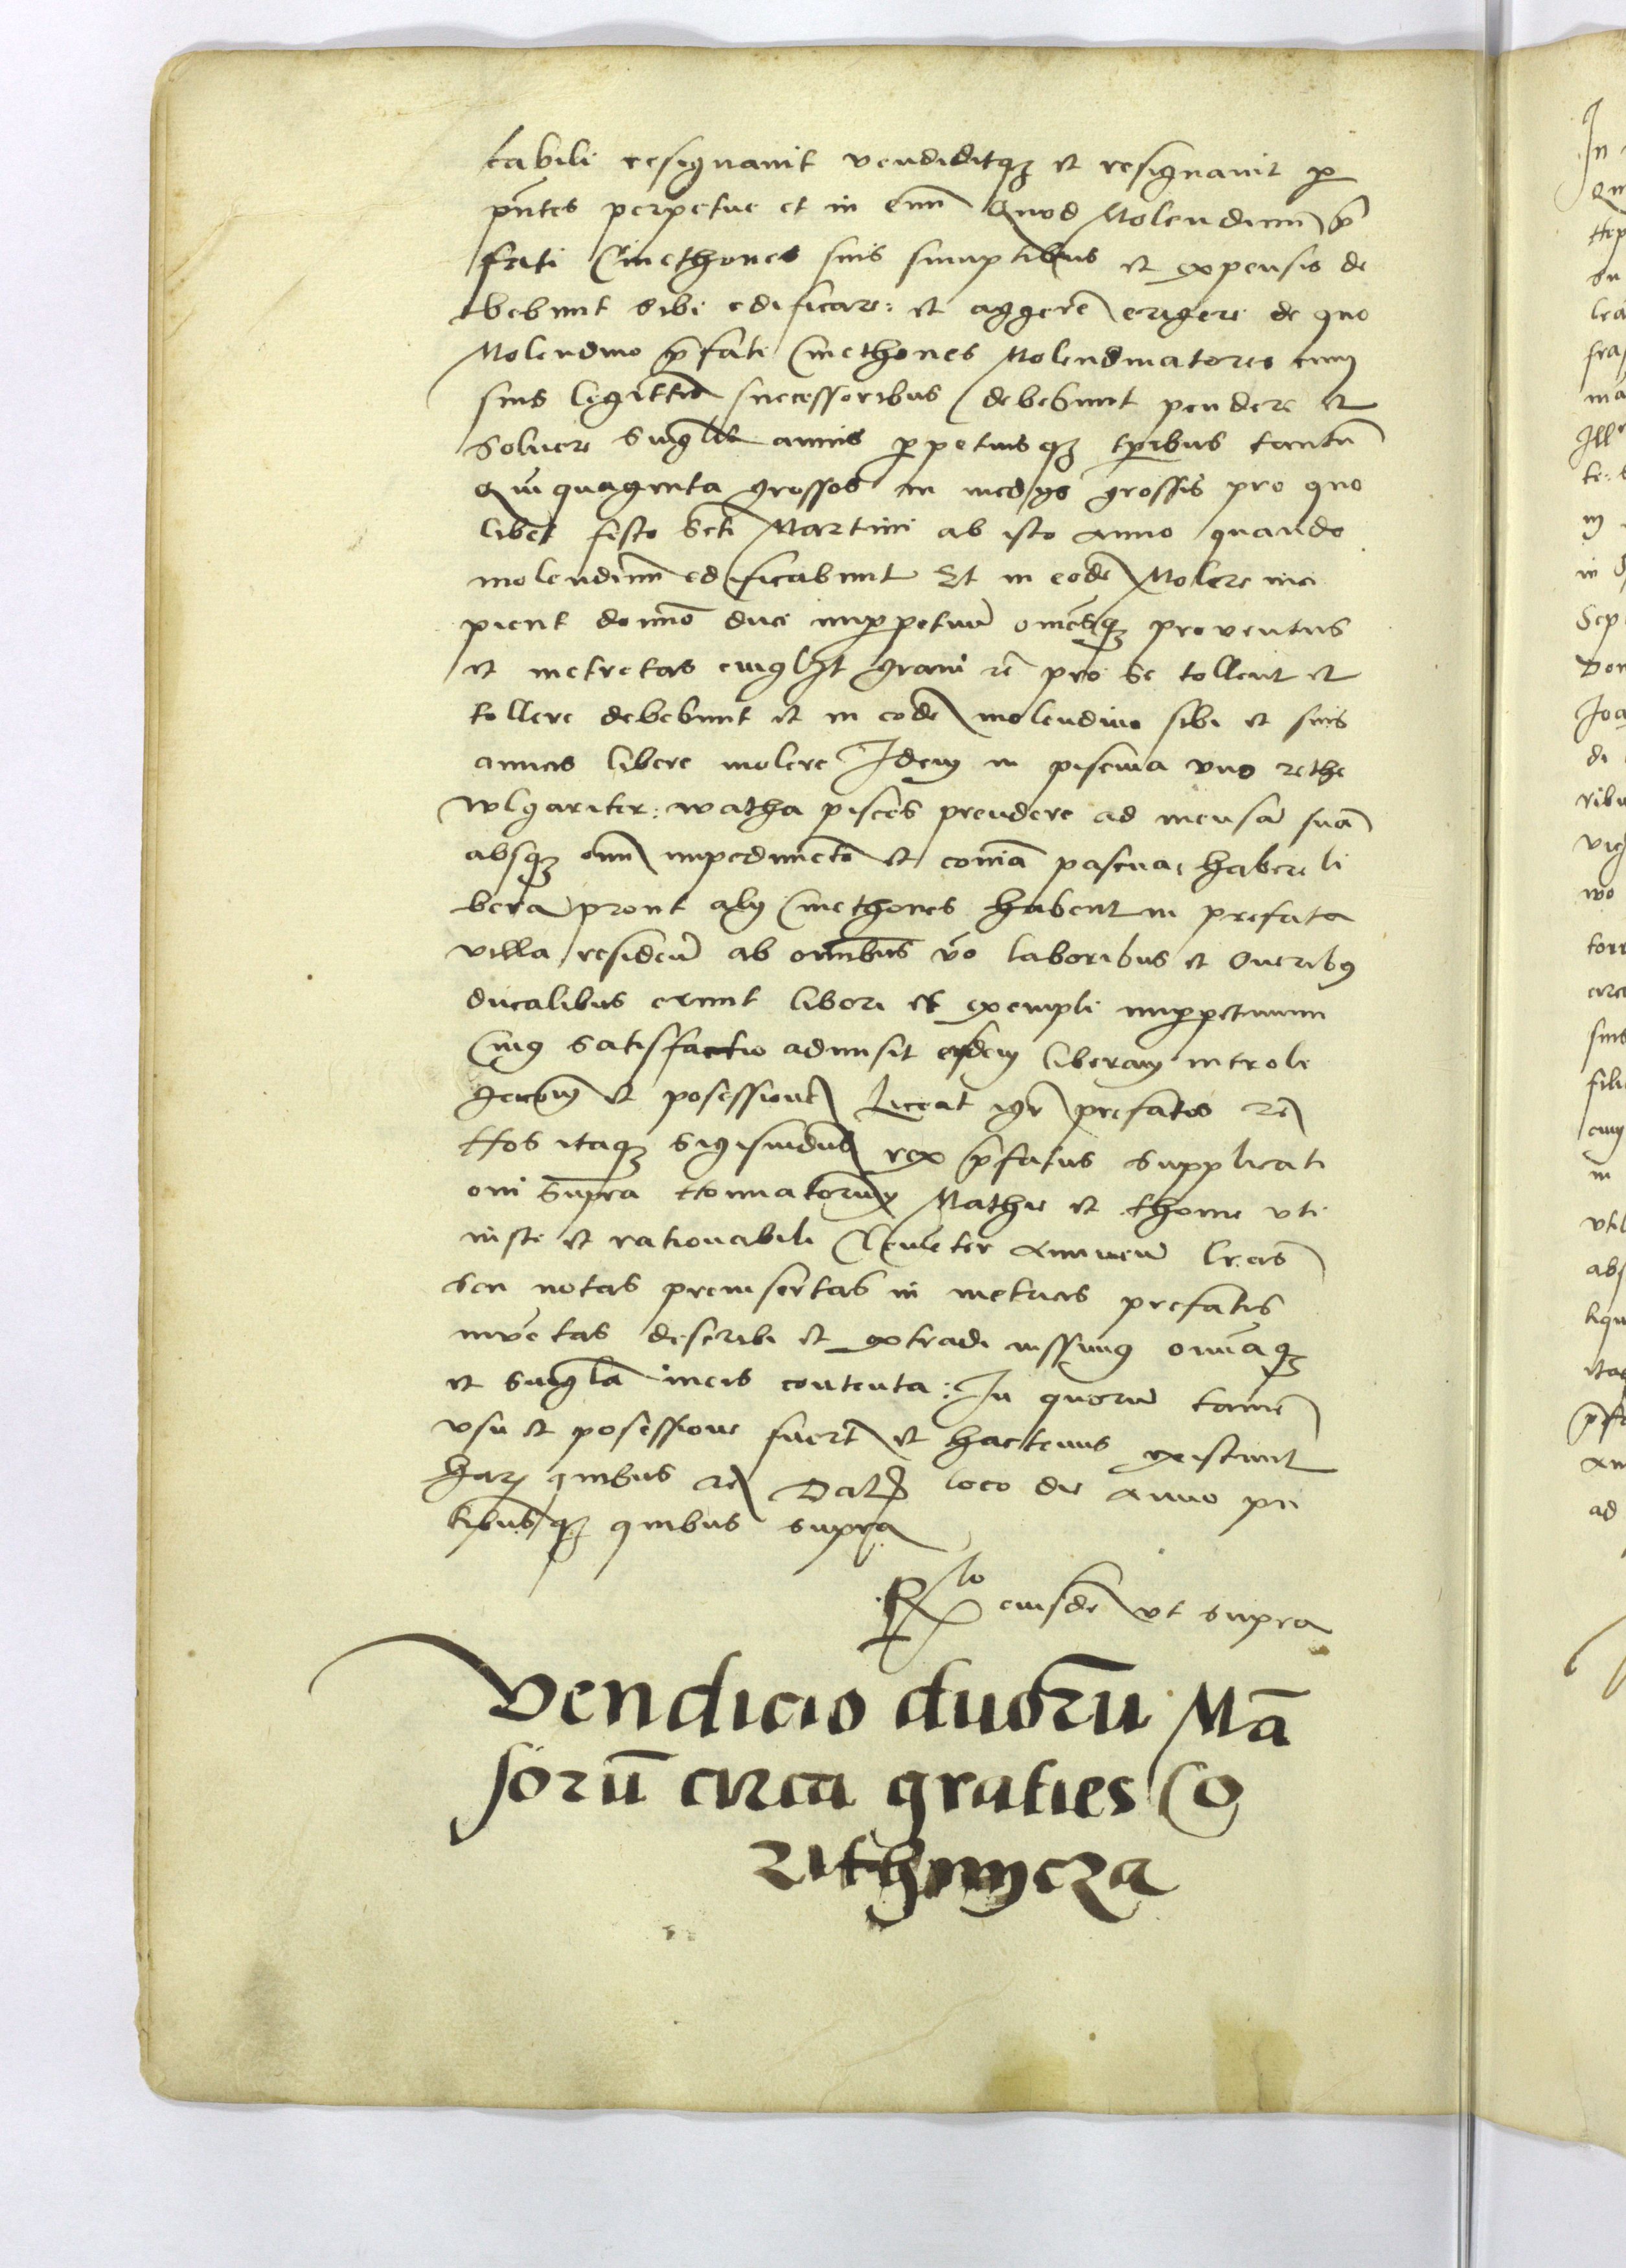 tabili resignauit vendiditqȝ et resignauit p̲
pn̄tes perpetue et in eum̄ Quod Molendinu̅ p̄
fati Cmethones suis sumptibus et expensis de
bebunt sibi edificare: et aggere̅ erigere de quo
Molendino p̄fati Cmethones Molendinatores cum
suis legitti̅s successoribus debebunt pendere et
soluere singl̅is annis p̲petuisqȝ tp̲ibus tantu̅
Quinquaginta grossos in medys grossis pro quo
libet festo Scti Martini ab isto anno quando
molendinu̅ edificabunt Et in eode̅ Molere inci
pient domi̅o duci imp̲petuu̅ om̅esqȝ prouentus
et metretas cuiuslȝt grani re̅ pro se tollent et
tollere debebunt et in eode̅ molendino sibi et suis
amicis libere molere Idem in piscina vno rethe
wlgariter: watha pisces prendere ad mensa̅ sua̅
absqȝ omi̅ impedime̅to et comi̅a pascua habere li
bera prout aly Cmethones habent in prefata
villa residen̅ ab om̅ibus v̅o laboribus et Oneribꝯ
ducalibus erunt liberi et exempti imp̲petuum
Cuiꝯ satisfactio admisit eisdem liberam introli
gaco̅em et posessione̅ Liceat igr̅ prefatos re̅
Nos itaqȝ Sigismdus̅ rex p̄fatus supplicati
oni supra no̅iatorum Mathie et thome vti
iuste et rationabili Cleme̅ter annuen̅ lr̅as
seu notas preinsertas in metricis prefatis
inue̅tas describi et extradi iussimꝯ omi̅aqȝ
et singl̅a ineis contenta: In quoru̅ tame̅
vsu et posessione fuert̅ et hactenus existunt
har̅ quibus re̅ Dat̅ loco die anno pn̅
tibusqȝ quibus supra
R̅lo eiusde̅ vt supra
Vendicio duoru̅ Ma̅
soru̅ circa graties Co
zithnycza